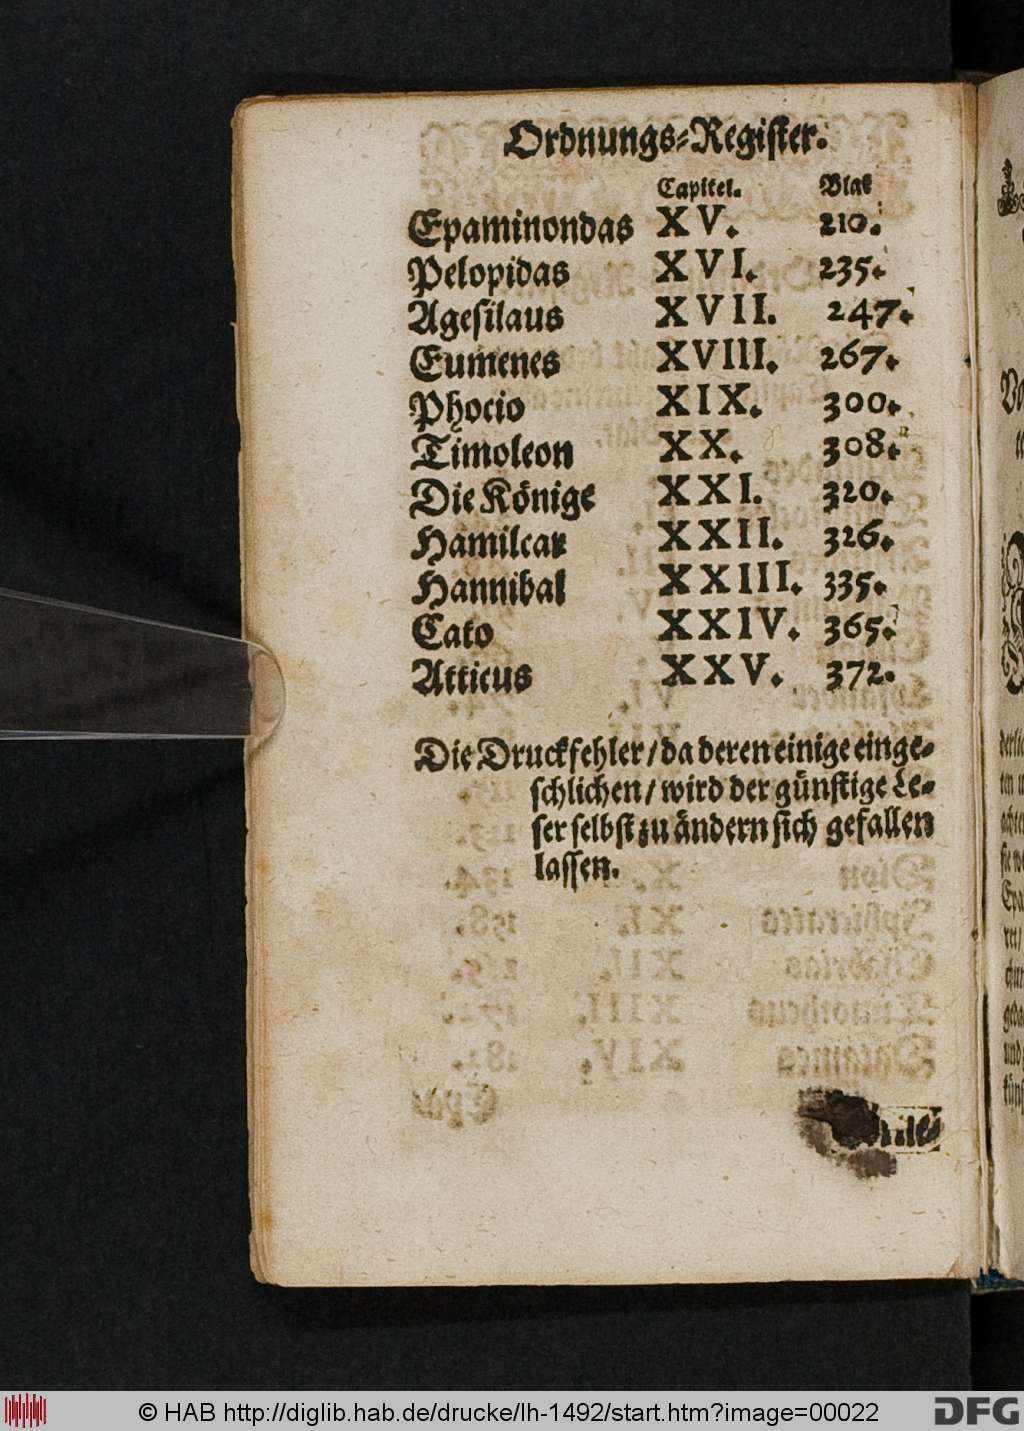 Ordnungs-Register.
Capitel. Blat
Epaminondas XV. 210.
Pelopidas XVI. 235.
Agesilaus XVII. 247.
Eumenes XVIII. 267.
Phocio XIX. 300.
Timoleon XX. 308.
Die Könige XXI. 320.
Hamilcar XXII. 326.
Hannibal XXIII. 335.
Cato XXIV. 365.
Atticus XXV. 372.
Die Druckfehler / da deren einige einge-
schlichen / wird der günstige Le-
ser selbst zu ändern sich gefallen
lassen.
© HAB http://diglib.hab.de/drucke/lh-1492/start.htm?image=00022
DFG